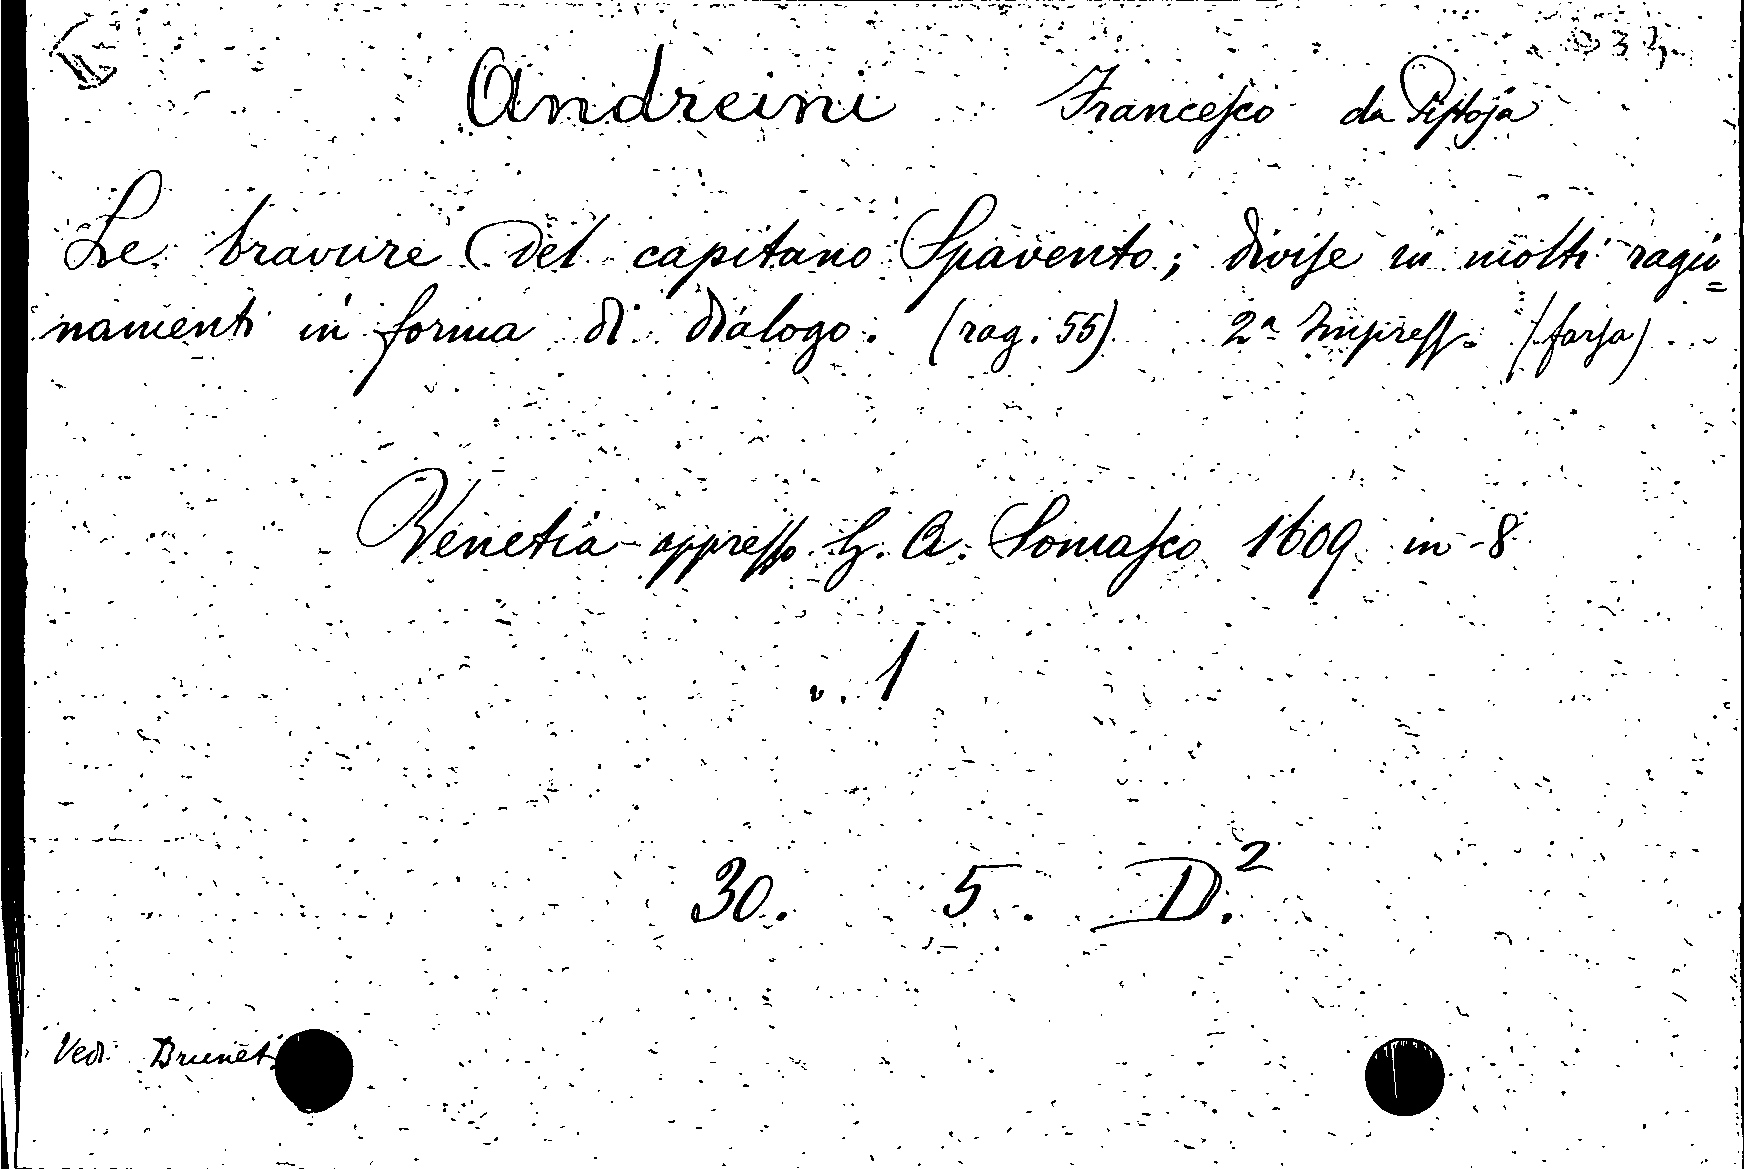 Andreini Francesco da Pistoja
Le bravure del capitano Spavento; divise in molti ragio=
namenti in forma di dialogo. (rag. 55) 2ª Impress. (farsa)
Venetia appresso G. A. Somasco 1609 in-8
v. 1
30. 5. D.²
Vedi Brunet